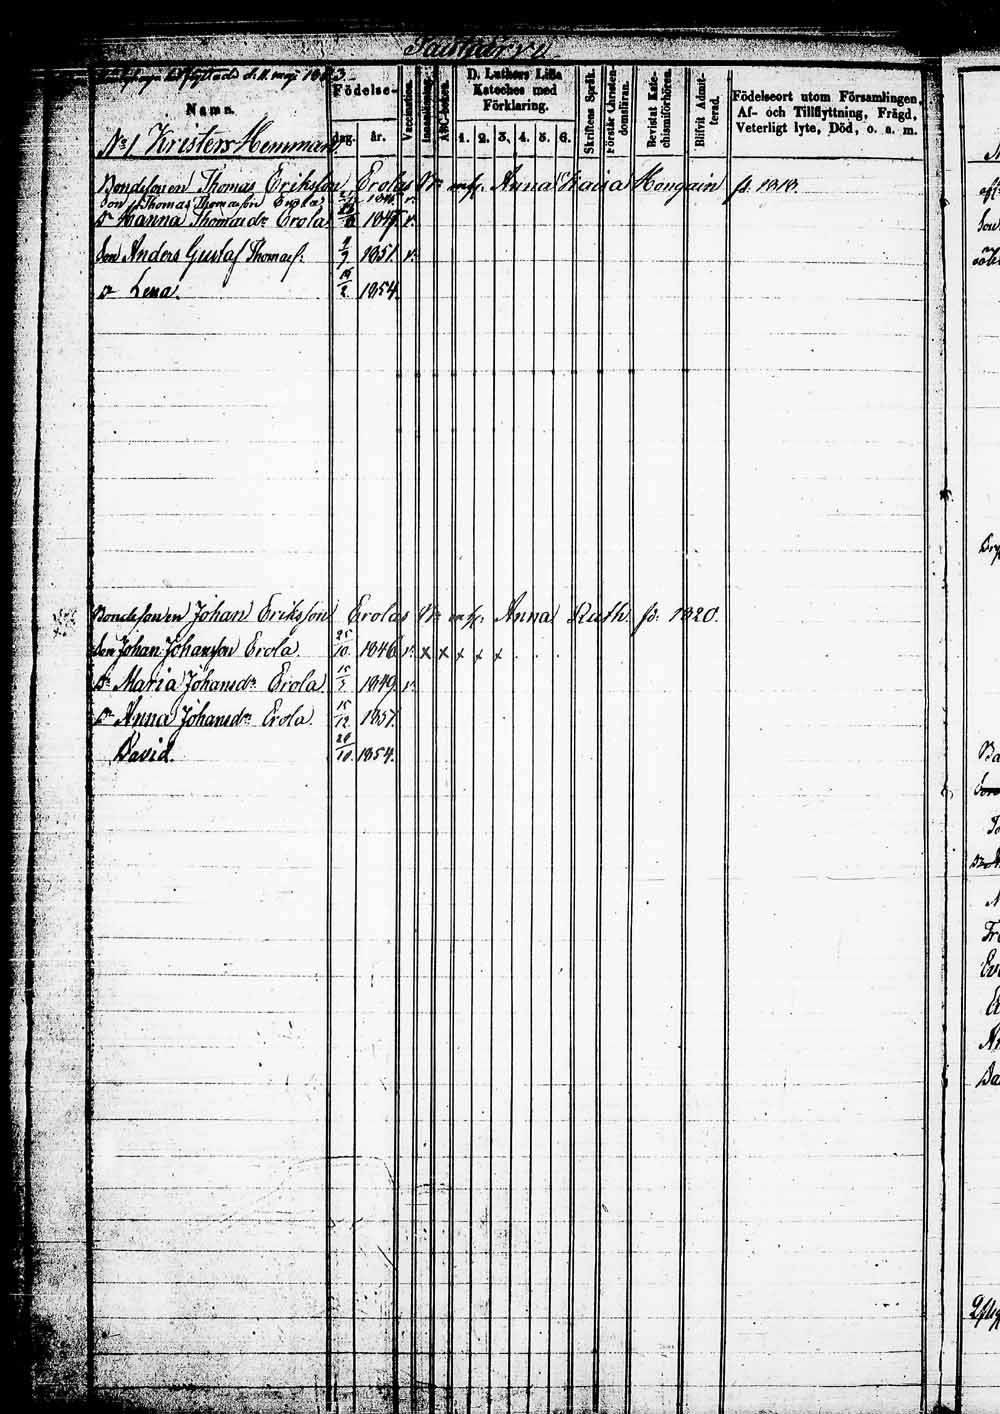 utflyttade d. 11 maj 1863.
Namn.
Födelse-
dag. år.
Vaccination.
Innanläsning.
ABC-boken.
D. Luthers Lilla
Kateches med
Förklaring.
1. 2. 3. 4. 5. 6.
Skriftens Språk.
Förstår Christen-
domsläran.
Bevistat Kate-
chismiförhören.
Blifvit Admit-
terad.
Födelseort utom Församlingen,
Af- och Tillflyttning, Frägd,
Veterligt lyte, Död, o. a. m.
No 1 Kristers Hemman.
Bondesonen Thomas Eriksson Erolas Anna Kaisa Hongain fd. 1818.
Son Thomas Thomasson Erola 1846 v.
Dr Hanna Thomasdr Erola 1847. v.
Son Anders Gustaf Thomass. 9/7 1851 v.
Dr Lena. 15/2 1854.
Bondesonen Johan Eriksson Erolas Anna Ruth fd. 1820.
Son Johan Johansson Erola. 25/10 1846 v. x x x x x . . .
Dr Maria Johansdr Erola. 15/5 1849 v.
Dr Anna Johansdr Erola. 15/12 1851.
David. 20/10 1854.